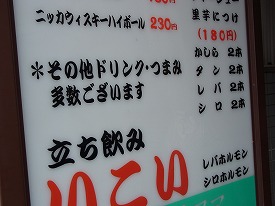 ニッカウィスキーハイボール 230円
里芋につけ
(180円)
かしら 2本
タン 2本
レバ 2本
シロ 2本
*その他ドリンク・つまみ
多数ございます
立ち飲み
いこい
レバホルモン
シロホルモン